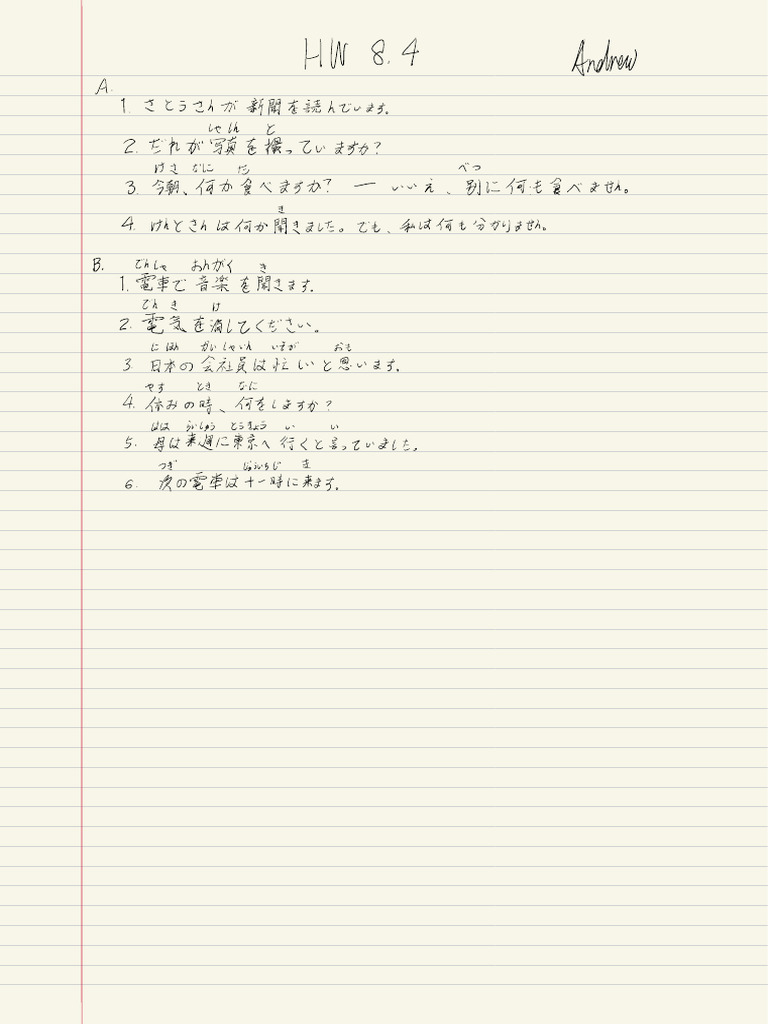 HW 8.4 Andrew
A.
1. さとうさんが新聞を読んでいます。
しゃしん と
2. だれが写真を撮っていますか?
けさ なに た べつ
3. 今朝、何か食べますか? ー いいえ、別に何も食べません。
き
4. けんとさんは何か聞きました。でも、私は何も分かりません。
B. でんしゃ おんがく き
1. 電車で音楽を聞きます。
でんき け
2. 電気を消してください。
にほん かいしゃいん いそが おも
3. 日本の会社員は忙しいと思います。
やす とき なに
4. 休みの時、何をしますか?
はは らいしゅう とうきょう い い
5. 母は来週に東京へ行くと言っていました。
つぎ じゅういちじ き
6. 次の電車は十一時に来ます。